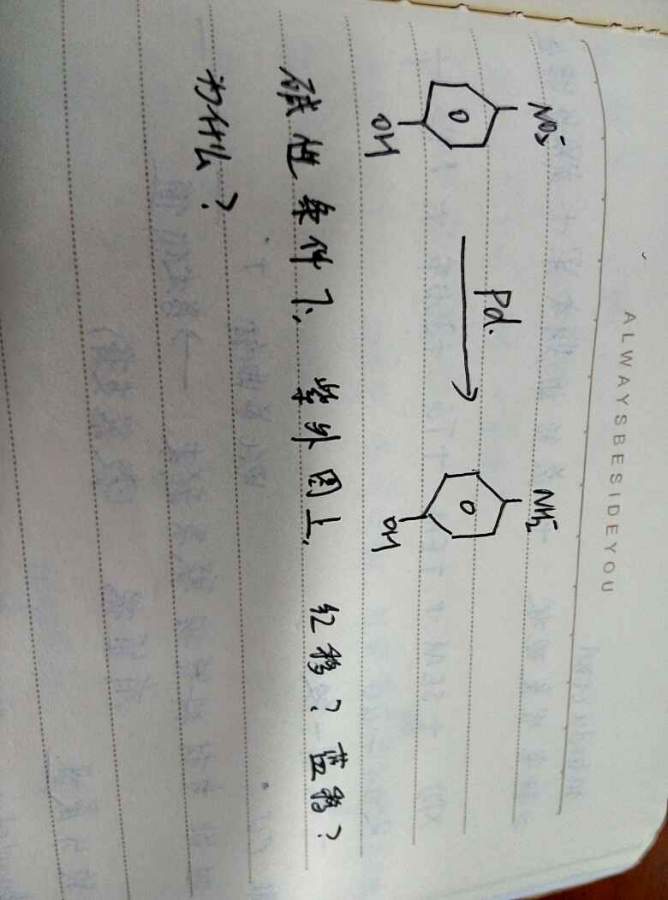 ALWAYSBESIDEYOU
NH₂
Pd.
OH OH
碱性条件下, 紫外图上, 红移? 蓝移?
为什么?